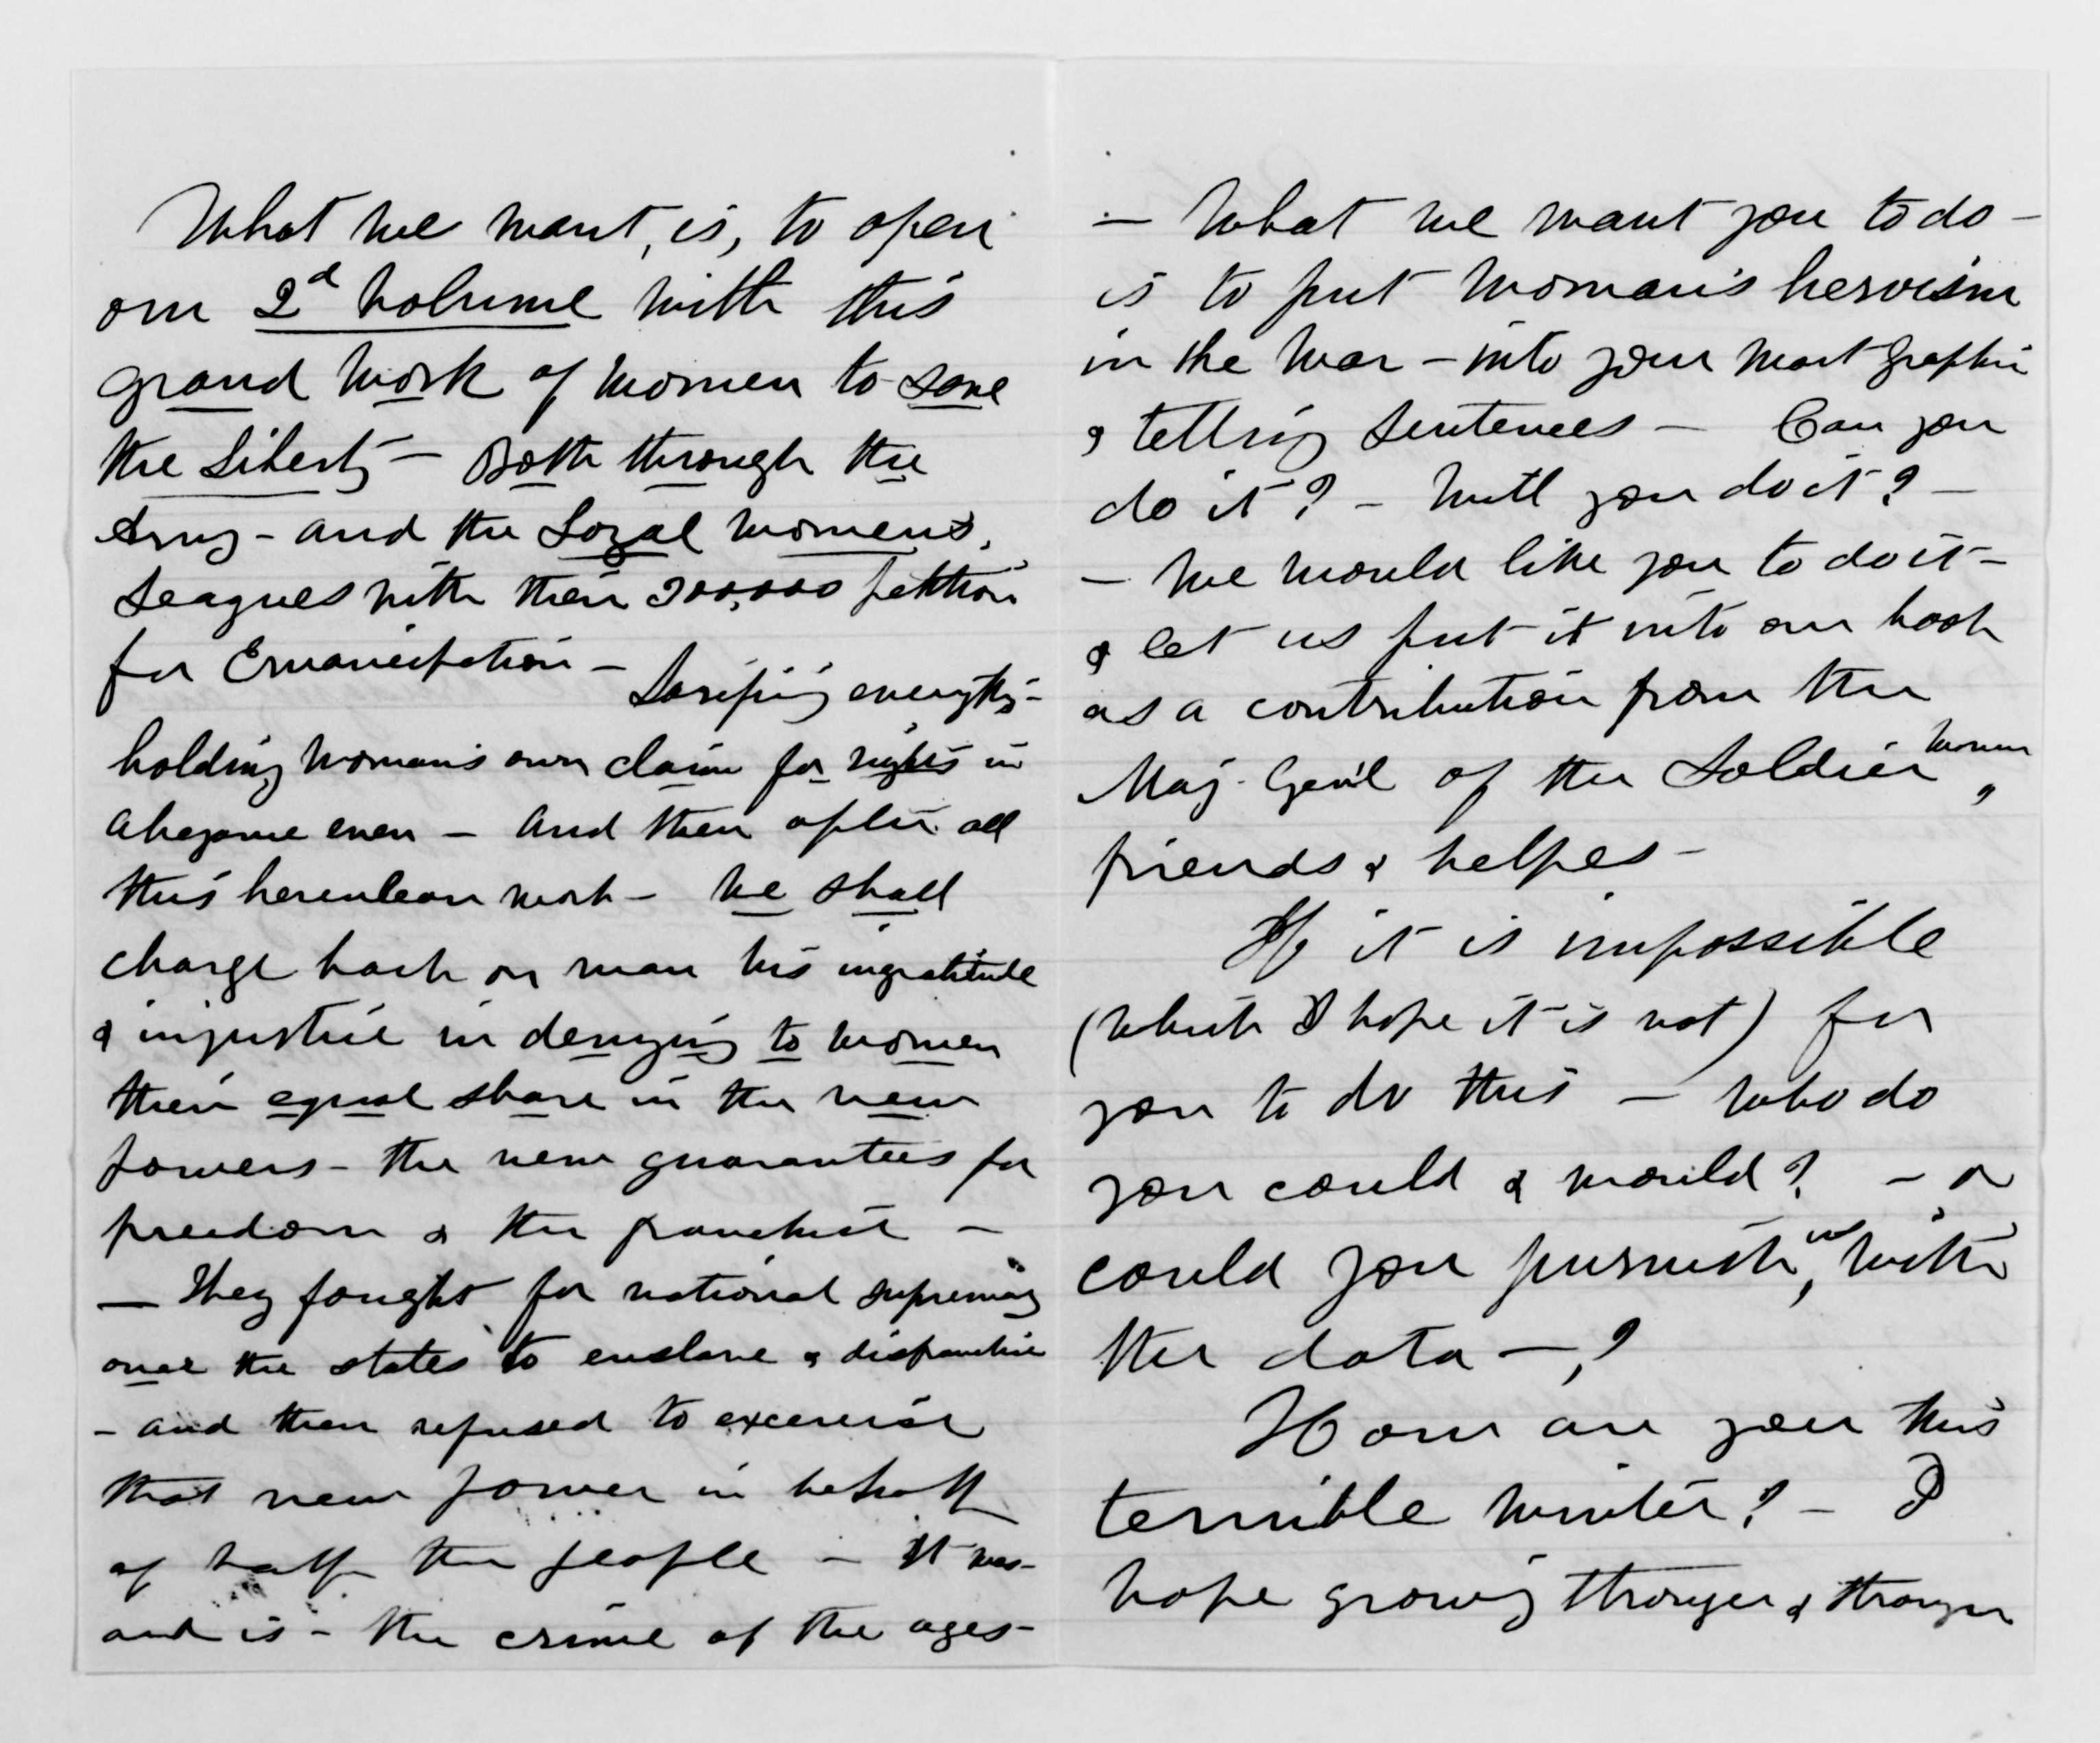 What we want, is, to open
our 2d volume with this
grand work of women to save
the Liberty — Both through the
Army - and the Loyal Womens,
Leagues with their 300,000 petition
for Emancipation —
holding woman's own claim for rights in
abeyance even — And then after all
this herculean work — we shall
charge back on man his ingratitude
& injustice in denying to women
their equal share in the new
powers - the new guarantees for
freedom & the franchise —
— They fought for national supremacy
over the states to enslave & disfranchise
- and then refused to excercise
that new power in behalf
of half the people — It was -
and is - the crime of the ages -
— What we want you to do —
is to put woman's heroism
in the war — into your most graphic
& telling sentences — Can you
do it? - Will you do it? —
— We would like you to do it —
& let us put it into our book
as a contribution from the
Maj. Gen'l of the Soldier women,
friends & helpes —
If it is impossible
(which I hope it is not) for
you to do this — who do
you could & would? — or
could you furnish us, with
the data —,?
How are you this
terrible winter? — I
hope growing stronger & stronger